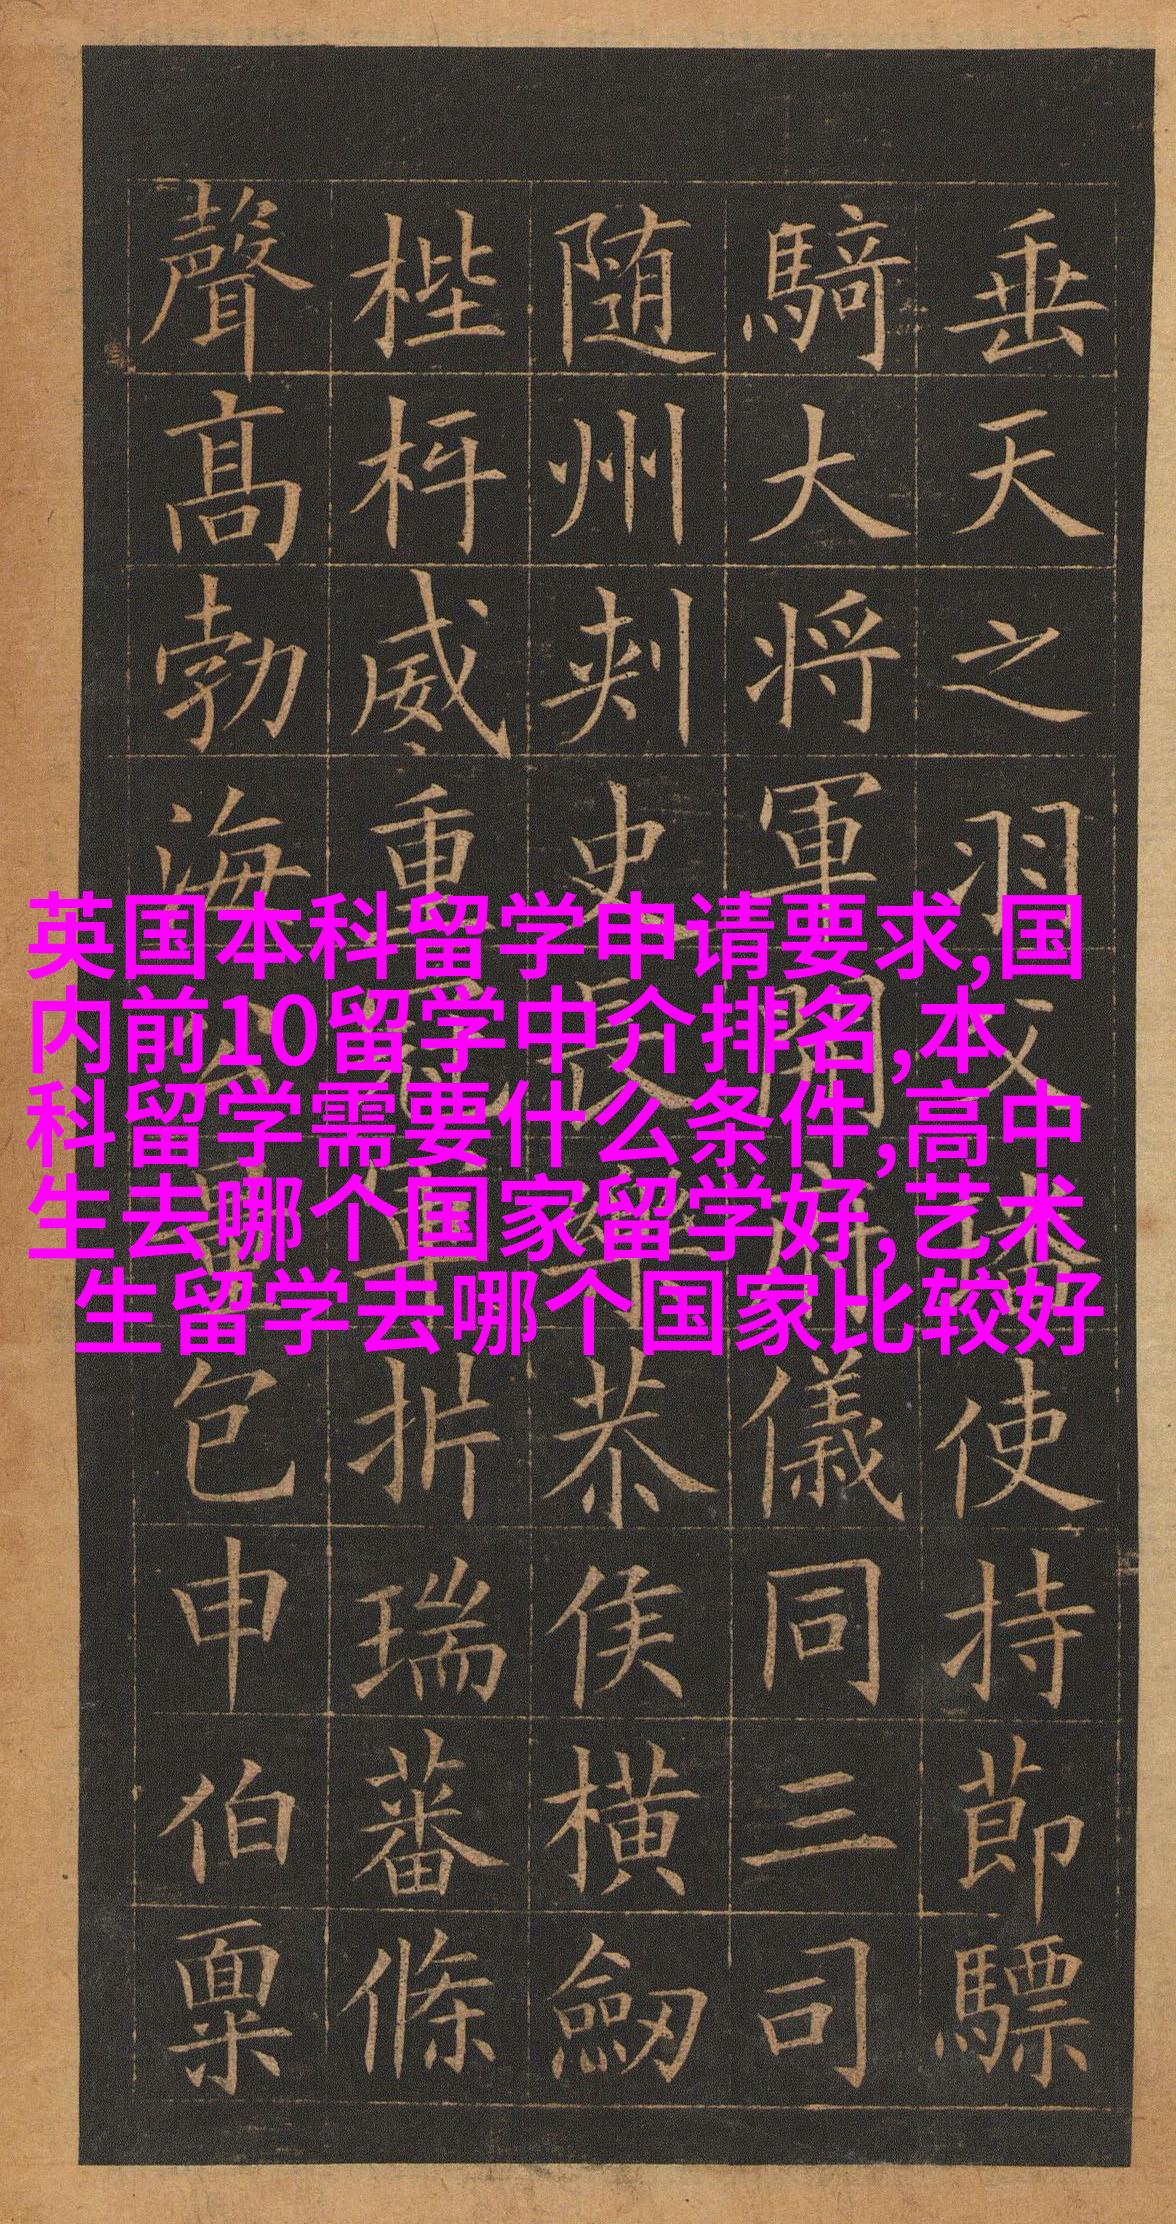 垂天之羽父璠使持節驃
騎大将軍開府儀同三司
随州刾史長樂恭侯橫劔
梐枑威重冠軍析瑞蕃條
聲高勃海公量包申伯稟
英国本科留学申请要求,国
内前10留学中介排名,本
科留学需要什么条件,高中
生去哪个国家留学好,艺术
生留学去哪个国家比较好